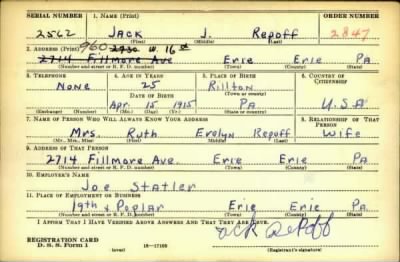 SERIAL NUMBER 1. NAME (Print) ORDER NUMBER
2562 JACK J. REPOFF 2847
(First) (Middle) (Last)
2. ADDRESS (Print) 960 2730 W. 16 st
2714 Fillmore Ave Erie Erie PA
(Number and street or R. F. D. number) (Town) (County) (State)
3. TELEPHONE 4. AGE IN YEARS 5. PLACE OF BIRTH 6. COUNTRY OF CITIZENSHIP
None 25 Rillton
DATE OF BIRTH (Town or county)
Apr. 15 1915 PA U.S.A
(Exchange) (Number) (Mo.) (Day) (Yr.) (State or country)
7. NAME OF PERSON WHO WILL ALWAYS KNOW YOUR ADDRESS 8. RELATIONSHIP OF THAT PERSON
Mrs. Ruth Evelyn Repoff Wife
(Mr., Mrs., Miss) (First) (Middle) (Last)
9. ADDRESS OF THAT PERSON
2714 Fillmore Ave. Erie Erie Pa
(Number and street or R. F. D. number) (Town) (County) (State)
10. EMPLOYER'S NAME
Joe Statler
11. PLACE OF EMPLOYMENT OR BUSINESS
19th & Poplar Erie Erie Pa
(Number and street or R. F. D. number) (Town) (County) (State)
I AFFIRM THAT I HAVE VERIFIED ABOVE ANSWERS AND THAT THEY ARE TRUE.
REGISTRATION CARD Jack Repoff
D. S. S. Form 1 (over) 16-17105 (Registrant's signature)